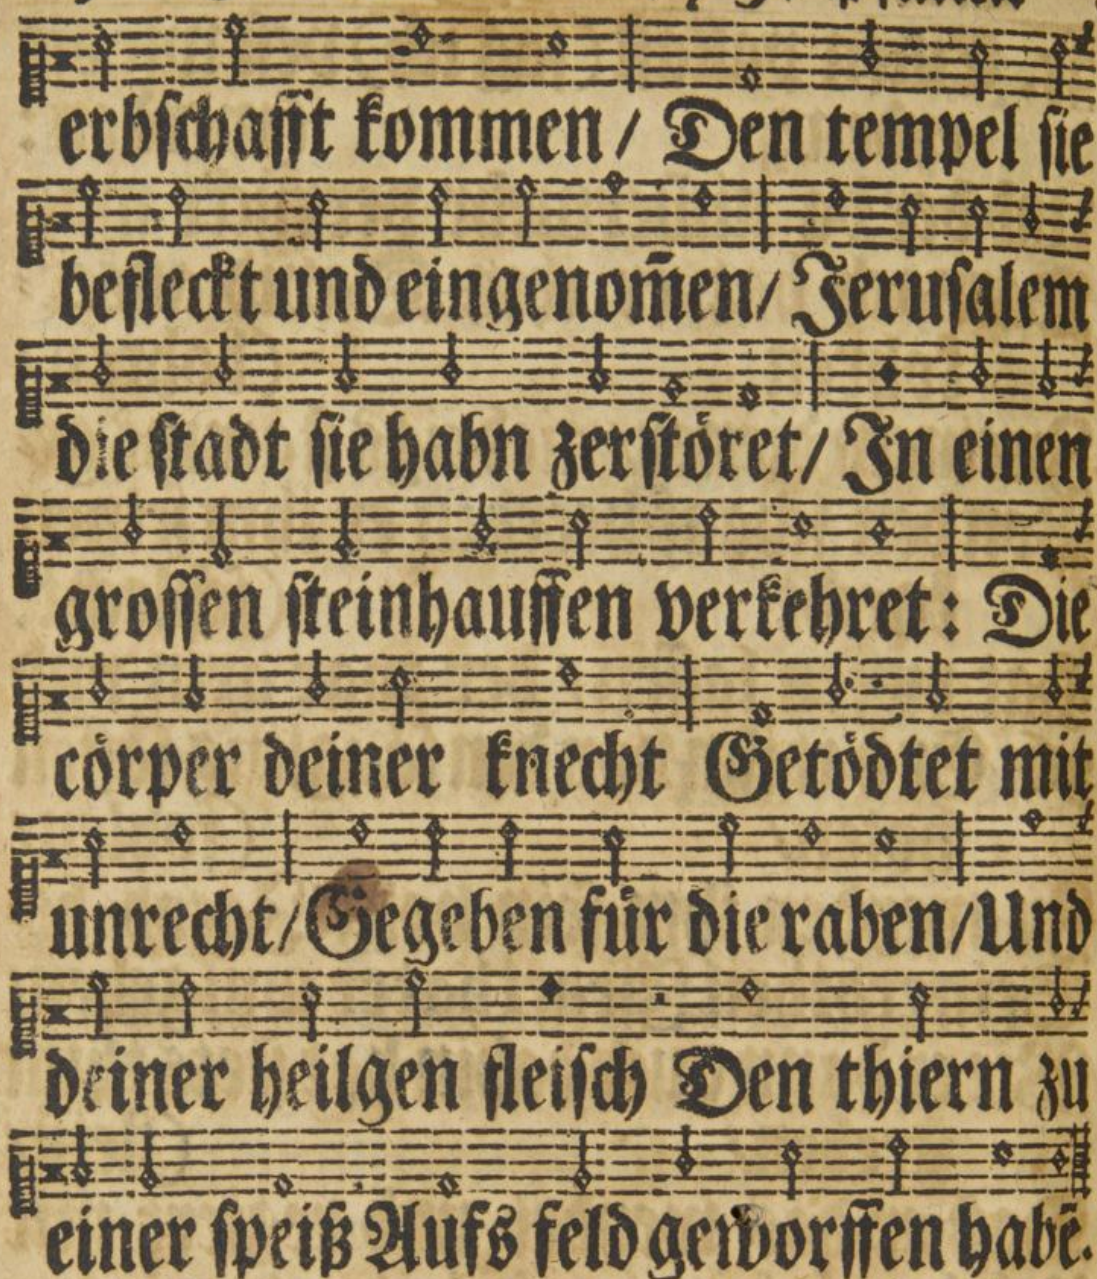 erbschafft kommen / Den tempel sie
befleckt und eingenom̃en / Jerusalem
die stadt sie habn zerstöret / In einen
grossen steinhauffen verkehret : Die
cörper deiner knecht Getödtet mit
unrecht / Gegeben für die raben / Und
deiner heilgen fleisch Den thiern zu
einer speiß Aufs feld geworffen habẽ.